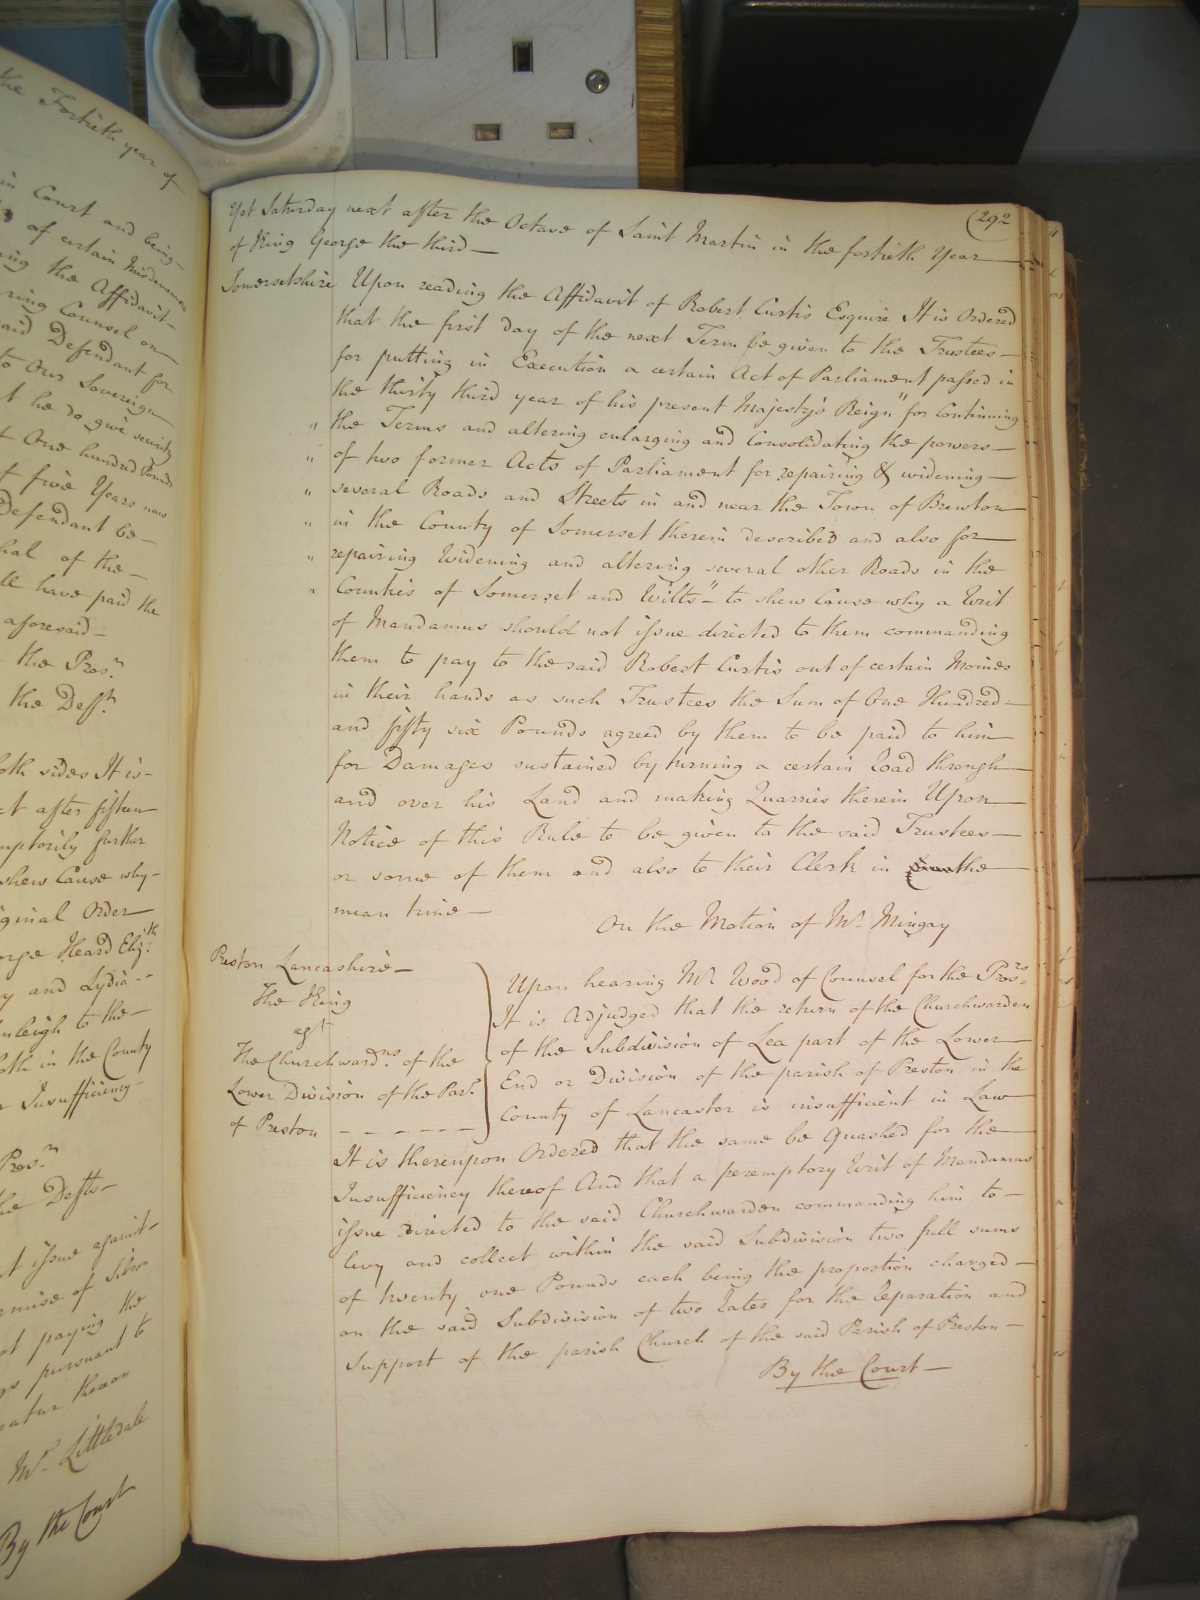 the Fortieth year of
in Court and being
of certain Misdemeanors
the Affidavit
Counsel on
said Defendant for
to Our Sovereign
he do give security
One hundred Pounds
five Years now
Defendant be
of the
have paid the
aforesaid
the Pros.r
the Deft.
both sides It is
after fifteen
further
shew Cause why
Order
Heard Eliz.th
and Lydia
to the
in the County
Insufficiency
Pros.r
the Defts
issue against
paying the
pursuant to
thereon
Mr. Littledale
By the Court
292
Yet Saturday next after the Octave of Saint Martin in the fortieth Year
of King George the third
Somersetshire Upon reading the Affidavit of Robert Curtis Esquire It is Ordered
that the first day of the next Term be given to the Trustees
for putting in Execution a certain Act of Parliament passed in
the thirty third year of his present Majesty's Reign "for Continuing
" the Terms and altering enlarging and Consolidating the powers
" of two former Acts of Parliament for repairing & widening
" several Roads and Streets in and near the Town of Brewton
" in the County of Somerset therein described and also for
" repairing Widening and altering several other Roads in the
" Counties of Somerset and Wilts" to shew Cause why a Writ
of Mandamus should not issue directed to them commanding
them to pay to the said Robert Curtis out of certain Monies
in their hands as such Trustees the Sum of One Hundred
and fifty six Pounds agreed by them to be paid to him
for Damages sustained by turning a certain Road through
and over his Land and making Quarries therein Upon
Notice of this Rule to be given to the said Trustees
or some of them and also to their Clerk in the
mean time
On the Motion of Mr. Mingay
Preston Lancashire
The King
agt
The Churchward.ns of the
Lower Division of the Par.h
of Preston
Upon hearing Mr Wood of Counsel for the Pros.rs
It is Adjudged that the return of the Churchwarden
of the Subdivision of Lea part of the Lower
End or Division of the parish of Preston in the
County of Lancaster is insufficient in Law
It is thereupon Ordered that the same be quashed for the
Insufficiency thereof And that a peremptory Writ of Mandamus
issue Directed to the said Churchwarden commanding him to
levy and collect within the said Subdivision two full sums
of twenty one Pounds each being the proportion charged
on the said Subdivision of two Rates for the Reparation and
Support of the parish Church of the said Parish of Preston
By the Court